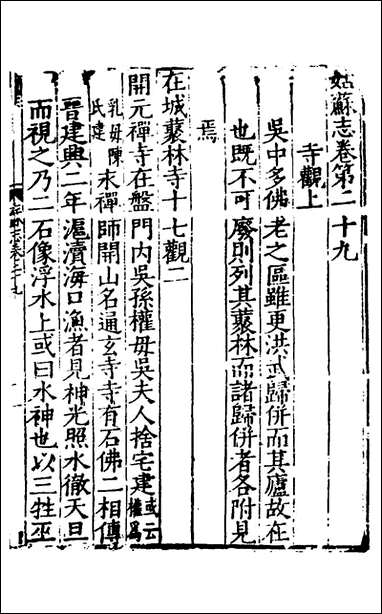 姑蘇志卷第二十九
寺觀上
吳中多佛老之區雖更洪武歸併而其廬故在
也既不可廢則列其藂林而諸歸併者各附見
焉
在城藂林寺十七觀二
開元禪寺在盤門内吳孫權母吳夫人捨宅建或云權爲
乳母陳氏建末禪師開山名通玄寺寺有石佛二相傳
晉建興二年滬瀆海口漁者見神光照水徹天旦
而視之乃二石像浮水上或曰水神也以三牲巫
姑蘇志卷二十九